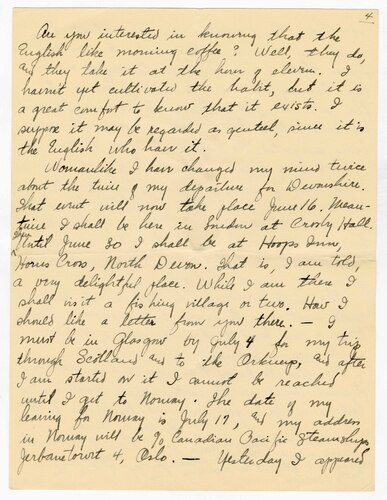 4
Are you interested in knowing that the
English like morning coffee? Well, they do,
and they take it at the hour of eleven. I
haven't yet cultivated the habit, but it is
a great comfort to know that it exists. I
suppose it may be regarded as genteel, since it is
the English who have it.
Womanlike I have changed my mind twice
about the time of my departure for Devonshire.
That event will now take place June 16. Mean-
time I shall be here in London at Crosby Hall.
Until June 30 I shall be at Hoops Inn,
Horns Cross, North Devon. That is, I am told,
a very delightful place. While I am there I
shall visit a fishing village or two. How I
should like a letter from you there. — I
must be in Glasgow by July 4 for my trip
through Scotland and to the Orkneys, and after
I am started on it I cannot be reached
until I get to Norway. The date of my
leaving for Norway is July 17, and my address
in Norway will be % Canadian Pacific Steamships,
Jernbanetorvet 4, Oslo. — Yesterday I appeared